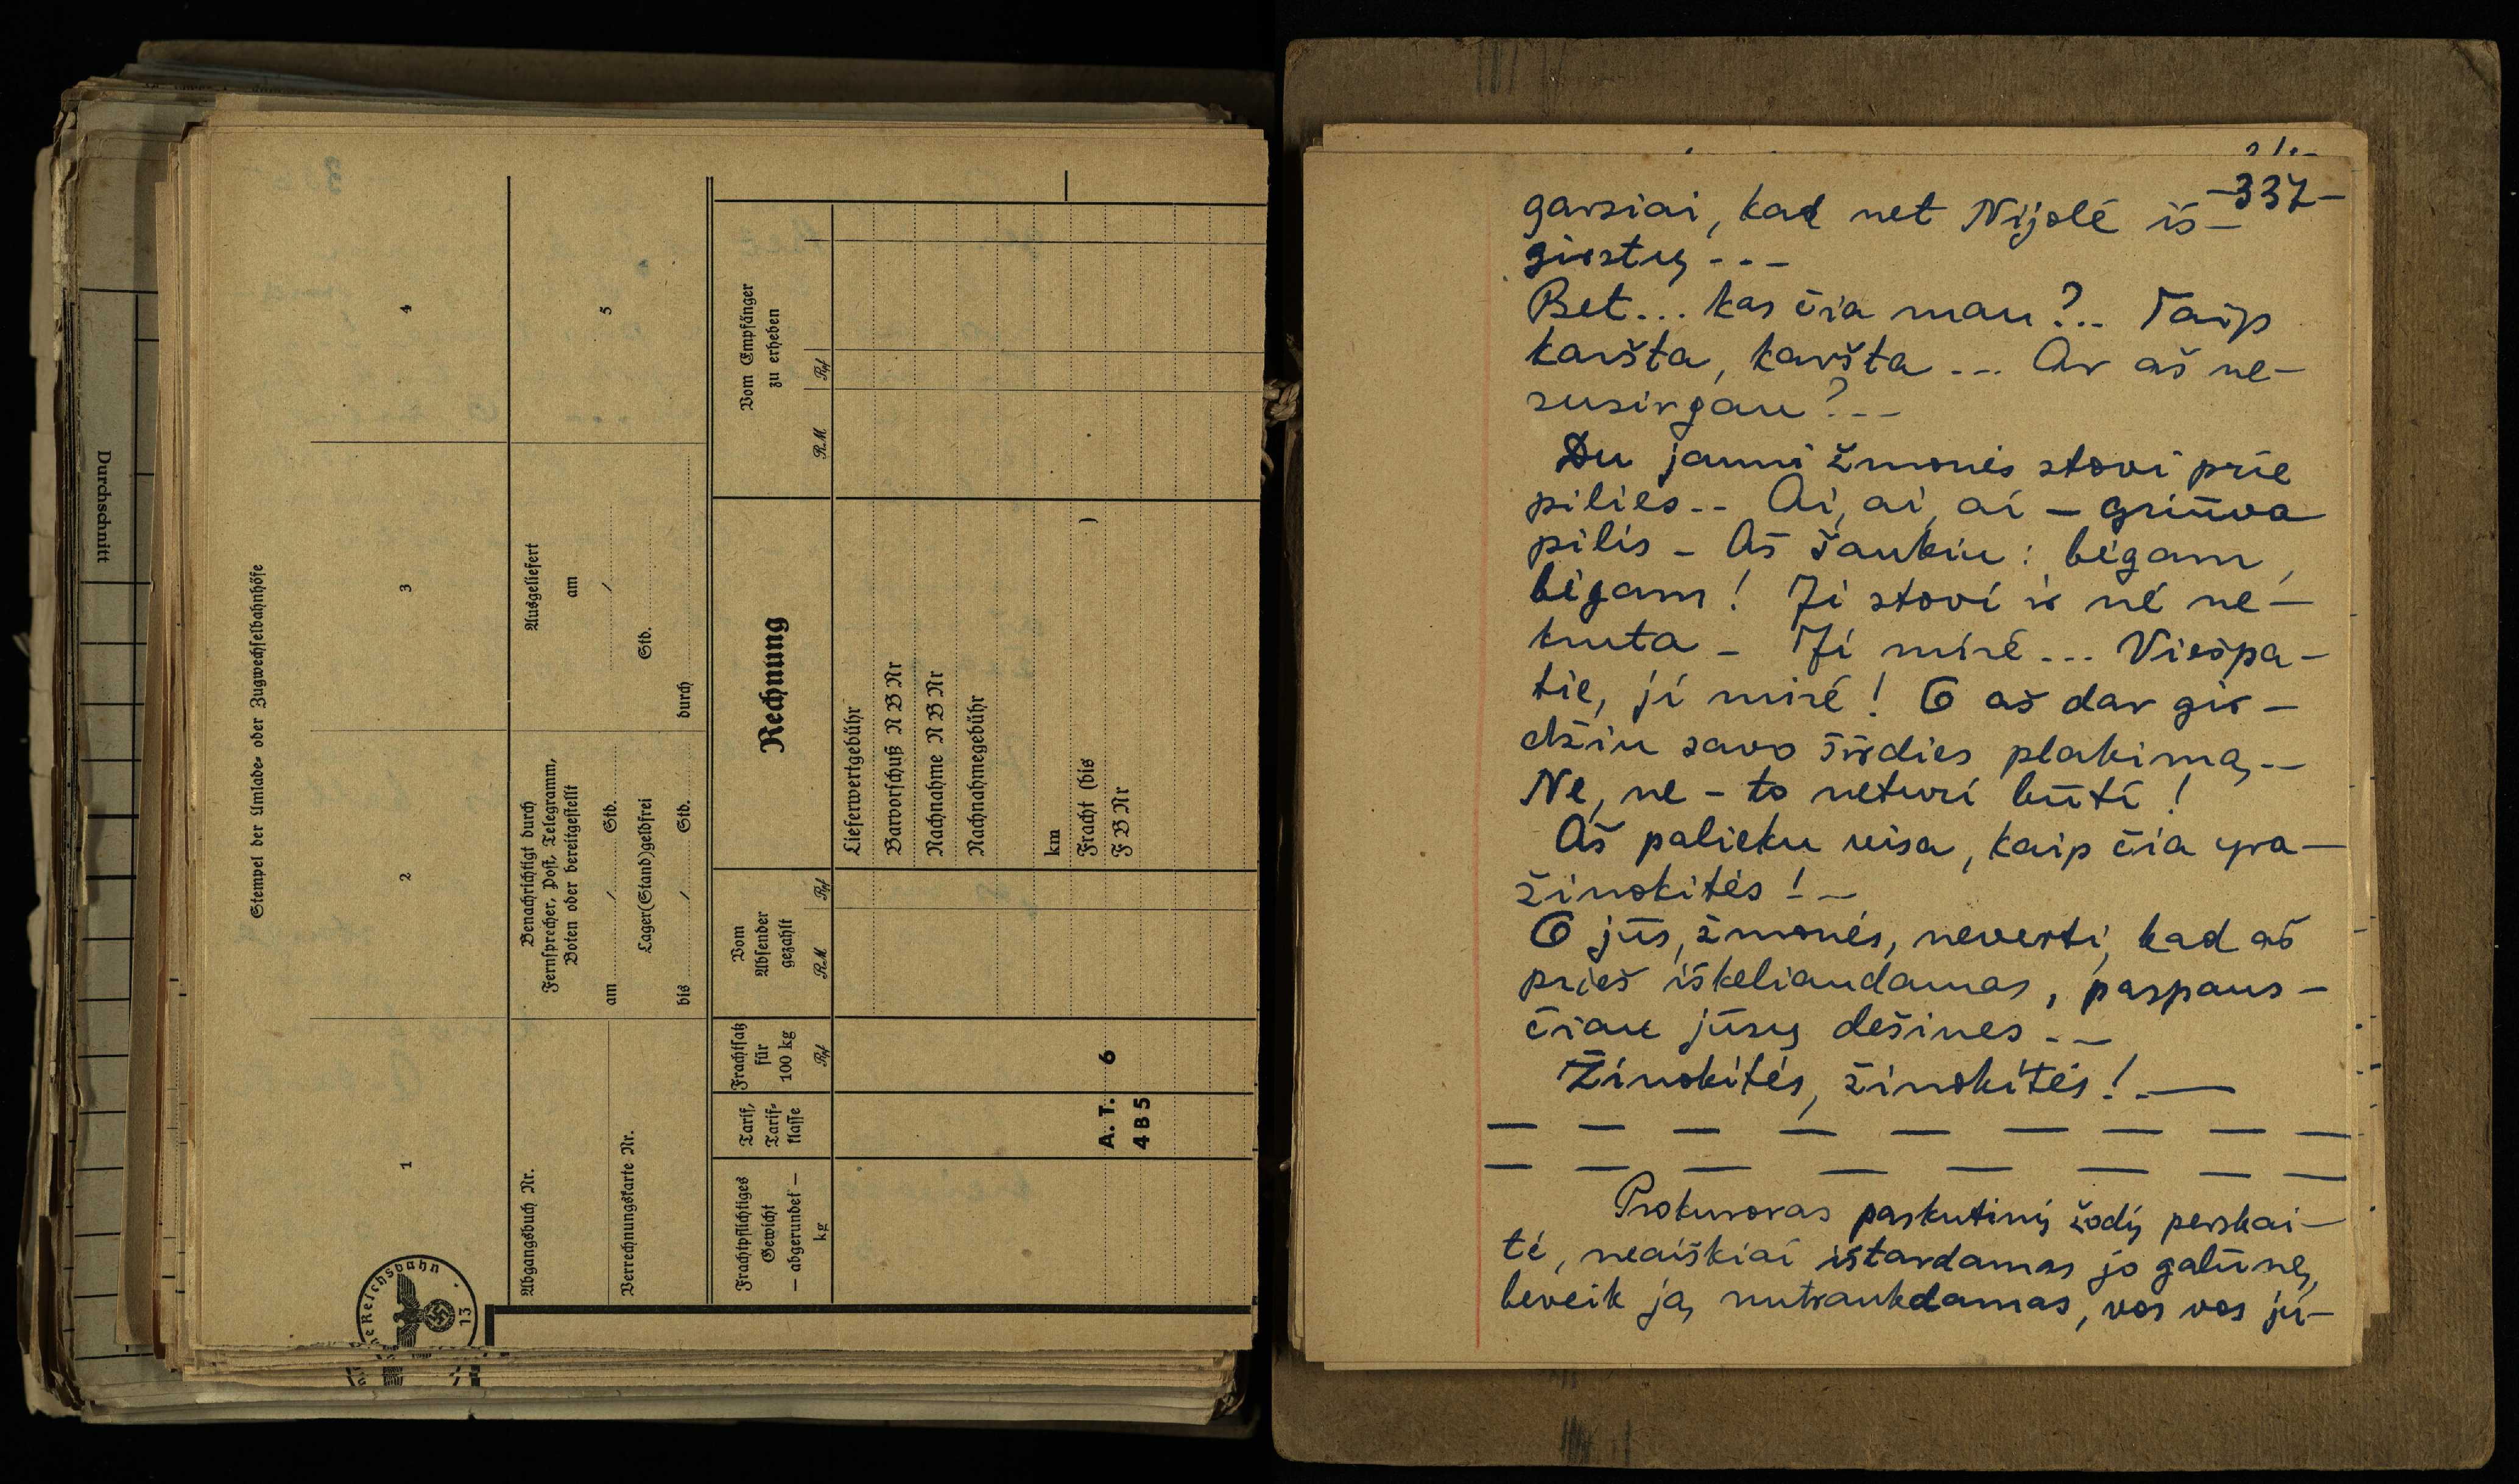 Durchschnitt
Stempel der Umlade- oder Zugwechselbahnhöfe
1
2
3
4
5
Abgangsbuch Nr.
Verrechnungskarte Nr.
Benachrichtigt durch
Fernsprecher, Post, Telegramm,
Boten oder bereitgestellt
am / Std.
Lager(Stand)geldfrei
bis / Std.
Ausgeliefert
am
/
Std.
durch
Frachtpflichtiges
Gewicht
— abgerundet —
kg
Tarif,
Tarif-
klasse
Frachtsatz
für
100 kg
Rpf
Vom
Absender
gezahlt
RM Rpf
Rechnung
Vom Empfänger
zu erheben
RM Rpf
Lieferwertgebühr
Barvorschuß N B Nr
Nachnahme N B Nr
Nachnahmegebühr
km
Fracht (bis )
F B Nr
A. T. 6
4 B 5
Reichsbahn
13
-337-
garsiai, kad net Nijolė iš-
girstų ---
Bet... kas čia man?.. Taip
karšta, karšta --- Ar aš ne-
susirgau?--
Du jauni žmonės stovi prie
pilies-- Ai, ai, ai — griūva
pilis - Aš šaukiu: bėgam,
bėgam! Ji stovi ir nė ne-
kruta - Ji mirė... Viešpa-
tie, ji mirė! O aš dar gir-
džiu savo širdies plakimą--
Ne, ne - to neturi būti!
Aš palieku visa, kaip čia yra-
žinokitės!--
O jūs, žmonės, neverti, kad aš
prieš iškeliaudamas, paspaus-
čiau jūsų dešines--
Žinokitės, žinokitės!-—
Prokuroras paskutinį žodį perskai-
tė, neaiškiai ištardamas jo galūnę,
beveik ją nutraukdamas, vos vos ju-